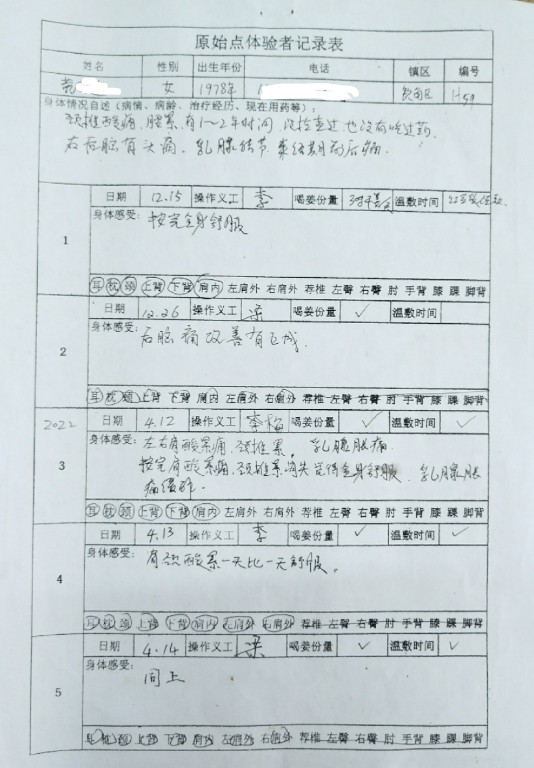 原始点体验者记录表
姓名 性别 出生年份 电话 镇区 编号
女 1978年 H59
身体情况自述（病情、病龄、治疗经历、现在用药等）：
颈椎酸痛 腰累 有1～2年时间 没检查过 也没有吃过药
右后脑有头痛 乳腺结节
日期 12.15 操作义工 李 喝姜份量 温敷时间
1
身体感受：按完全身舒服
耳 枕 颈 上背 下背 肩内 左肩外 右肩外 荐椎 左臀 右臀 肘 手背 膝 踝 脚背
日期 12.26 操作义工 梁 喝姜份量 ✓ 温敷时间
2
身体感受：后脑痛改善有七成.
耳 枕 颈 上背 下背 肩内 左肩外 右肩外 荐椎 左臀 右臀 肘 手背 膝 踝 脚背
2022
日期 4.12 操作义工 李梅 喝姜份量 ✓ 温敷时间 ✓
3
身体感受：左右肩酸累痛 颈椎累, 乳腺胀痛
按完肩酸累痛 颈椎累消失 觉得全身舒服 乳腺胀
痛缓解.
耳 枕 颈 上背 下背 肩内 左肩外 右肩外 荐椎 左臀 右臀 肘 手背 膝 踝 脚背
日期 4.13 操作义工 李 喝姜份量 ✓ 温敷时间 ✓
4
身体感受：肩颈酸累一天比一天舒服。
耳 枕 颈 上背 下背 肩内 左肩外 右肩外 荐椎 左臀 右臀 肘 手背 膝 踝 脚背
日期 4.14 操作义工 梁 喝姜份量 ✓ 温敷时间 ✓
5
身体感受：同上
耳 枕 颈 上背 下背 肩内 左肩外 右肩外 荐椎 左臀 右臀 肘 手背 膝 踝 脚背